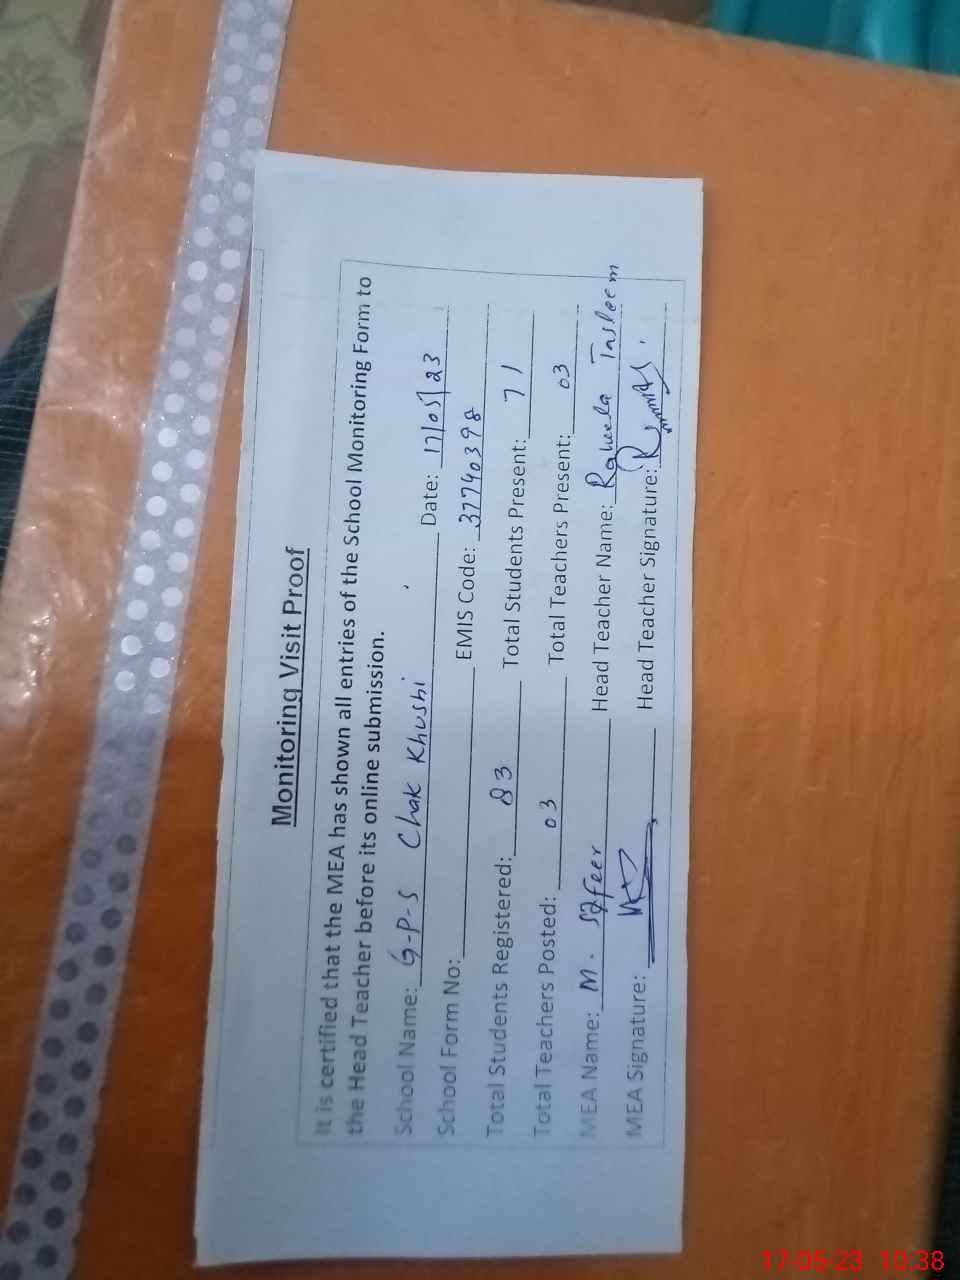 Monitoring Visit Proof
It is certified that the MEA has shown all entries of the School Monitoring Form to
the Head Teacher before its online submission.
School Name: G-P-S Chak Khushi Date: 17/05/23
School Form No: EMIS Code: 37740398
Total Students Registered: 83 Total Students Present: 71
Total Teachers Posted: 03 Total Teachers Present: 03
MEA Name: M. Safeer Head Teacher Name: Raheela Tasleem
MEA Signature: Head Teacher Signature:
17-05-23 10:38